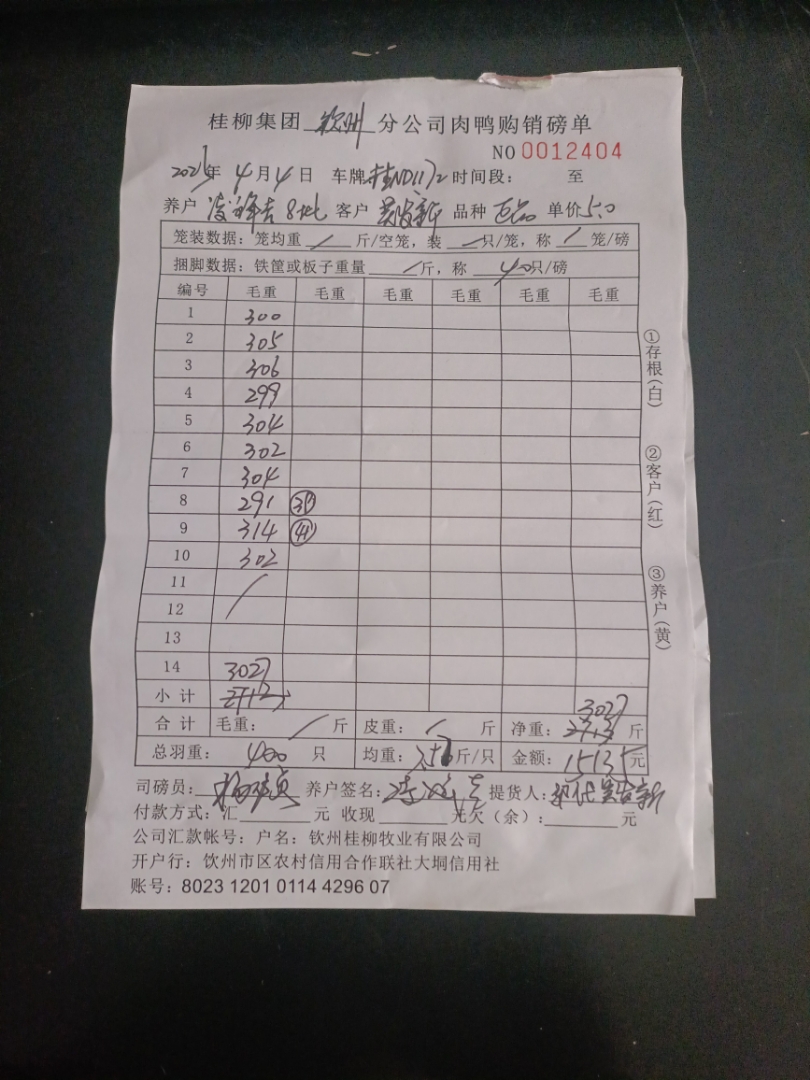 桂柳集团 钦州 分公司肉鸭购销磅单
NO 0012404
年 4月4日 车牌 时间段： 至
养户 客户 品种 单价5.0
笼装数据：笼均重 / 斤/空笼，装 / 只/笼，称 / 笼/磅
捆脚数据：铁筐或板子重量 / 斤，称 40只/磅
编号 毛重 毛重 毛重 毛重 毛重 毛重
1 300
2 305
3 306
4 299
5 304
6 302
7 304
8 291
9 314 41
10 302
11
12
13
14 3027
小计 3027
合计 毛重： / 斤 皮重： / 斤 净重： 斤
总羽重： 400 只 均重： 斤/只 金额：15135元
司磅员： 养户签名： 提货人：
付款方式：汇 元 收现 元欠（余）： 元
公司汇款帐号：户名：钦州桂柳牧业有限公司
开户行：饮州市区农村信用合作联社大垌信用社
账号：8023 1201 0114 4296 07
①存根（白）
②客户（红）
③养户（黄）